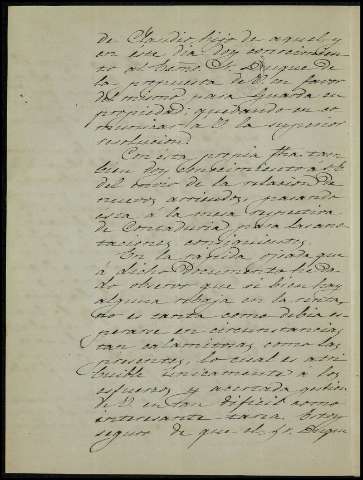 de Claudio, hijo de aquel, y
en este dia doy conocimien
to al Excmo. Sr. Duque de
la propuesta de V. en favor
del mismo para guarda en
propiedad; quedando en co
municar a V. la superior
resolucion.
Con esta propia fha. tam
bien doy conocimiento a S.E.
del envio de la relacion de
nuevos arriendos, pasando
esta á la mesa respectiva
de Contaduria para las ano
taciones consiguientes.
En la rapida ojeada que
á dicho Documento he da
do observo que si bien hay
alguna rebaja en la renta,
no es tanta como debia es
perarse en circunstancias
tan calamitosas como las
presentes, lo cual es atri
buible unicamente á los
esfuerzos y acertada gestion
de V. en tan dificil como
interesante tarea. Estoy
seguro de que el Sr. Duque